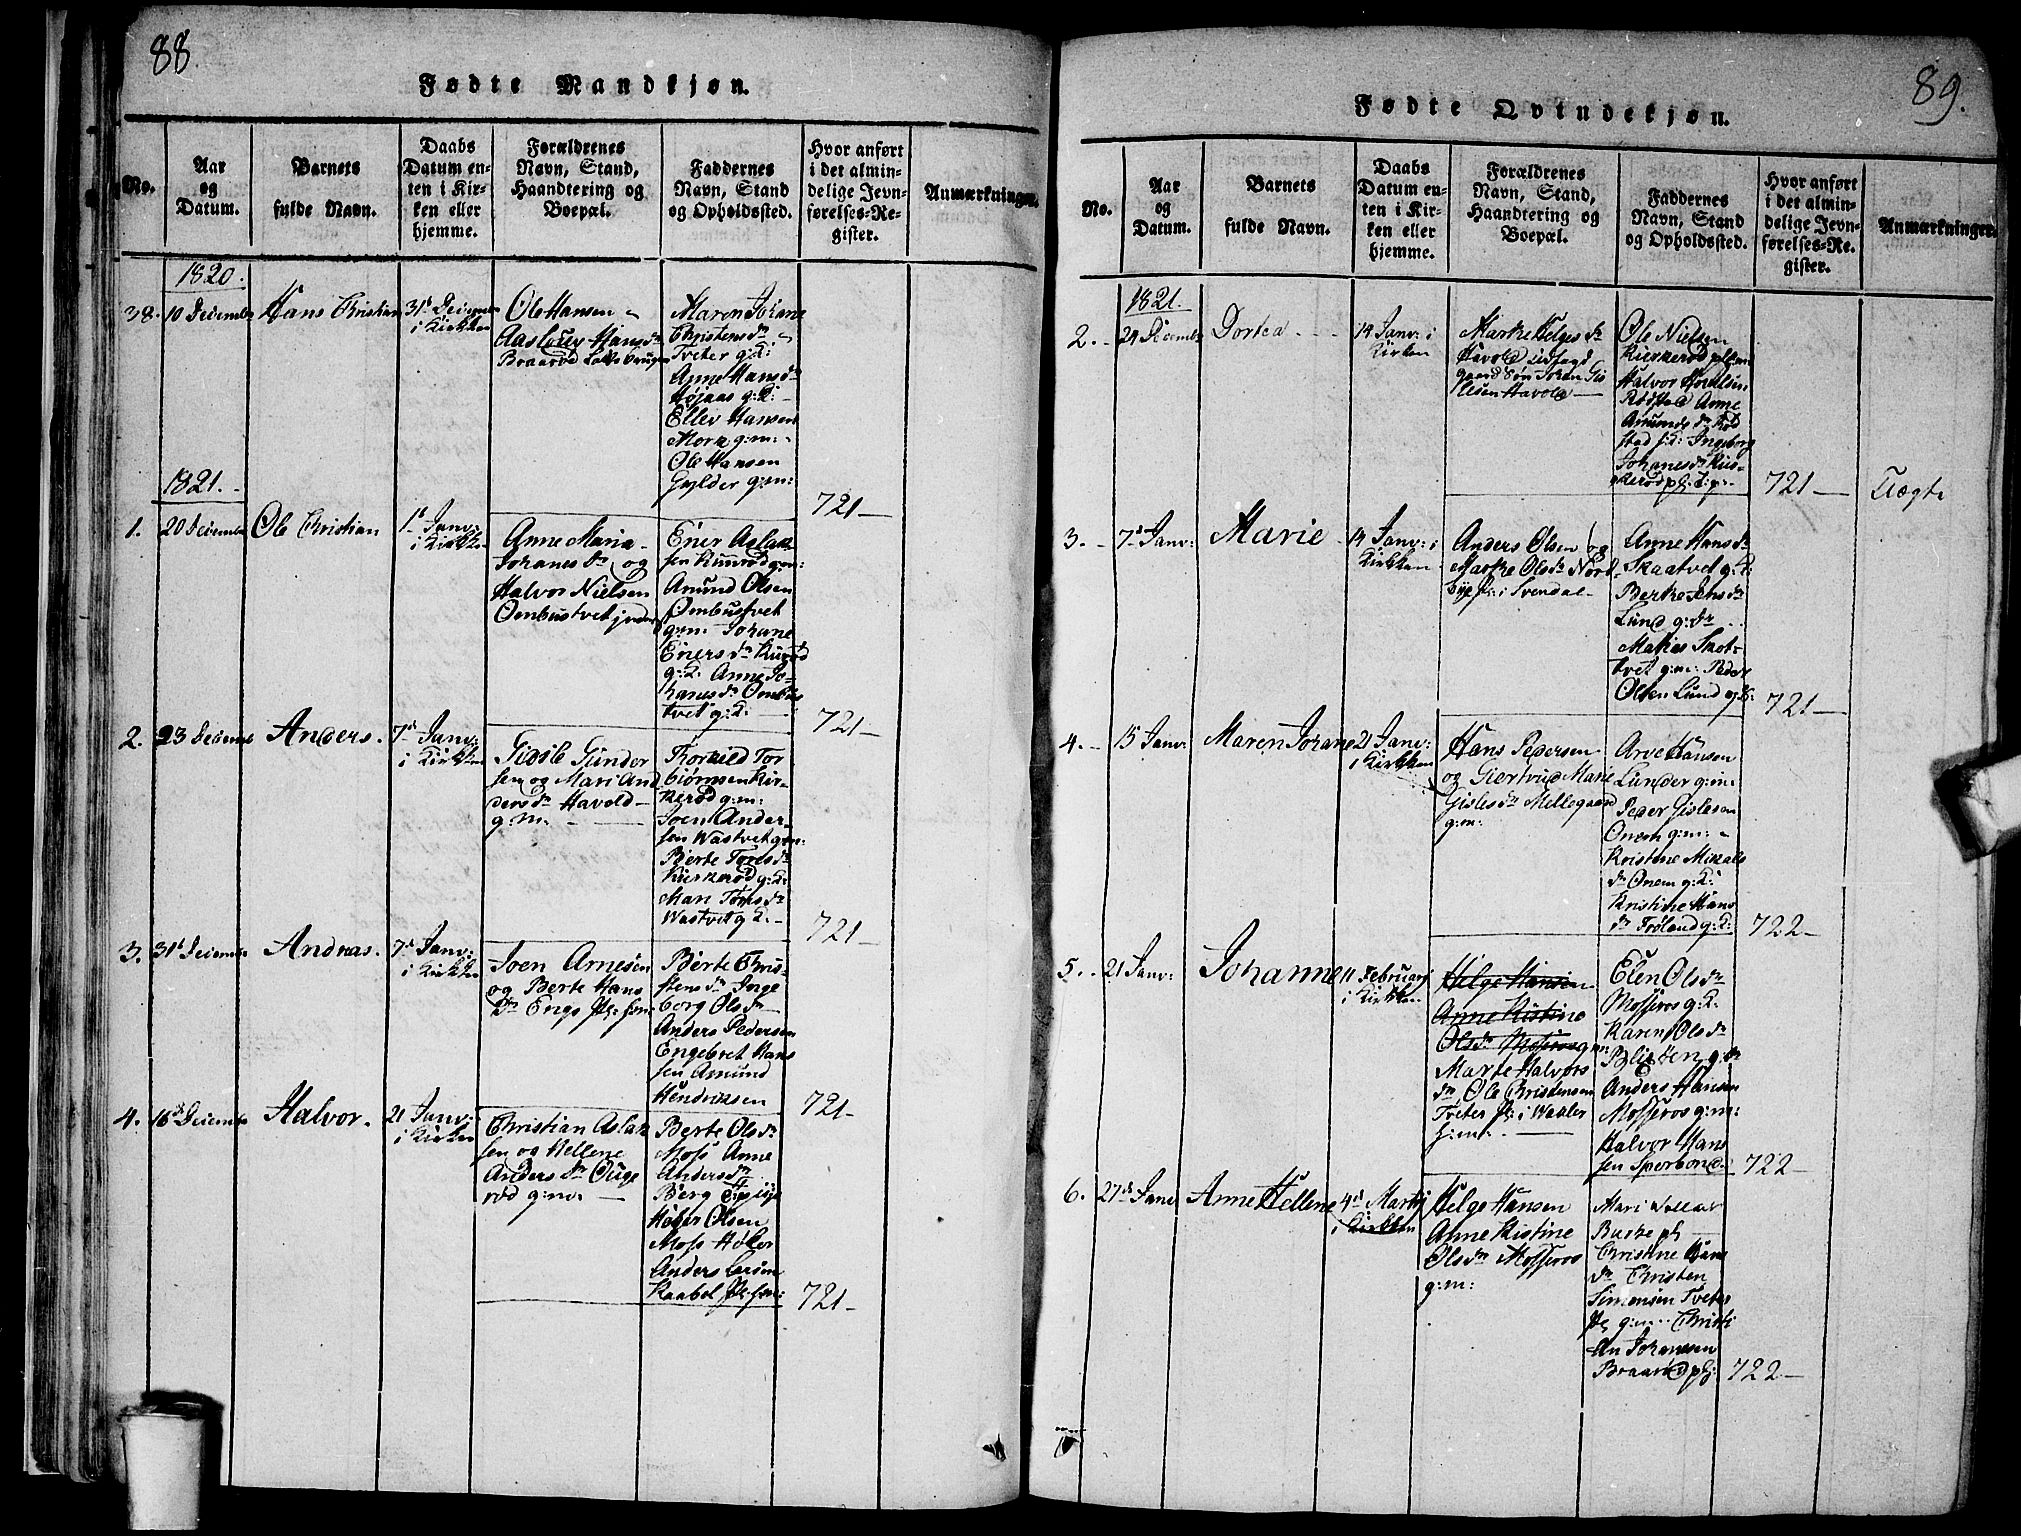 88.
Fødte Mandkjøn.
No.
Aar
og
Datum.
Barnets
fulde Navn.
Daabs
Datum en-
ten i Kir-
ken eller
hjemme.
Forældrenes
Navn, Stand,
Haandtering og
Boepæl.
Faddernes
Navn, Stand
og Opholdssted.
Hvor anført
i det almin-
delige Jevn-
førelses-Re-
gister.
Anmærkninger.
1820.
38. 10 Decembr
Hans Christian
31t Decembr
i Kirkken
Ole Hansen
Aasloug Hansdr
Braarød
Maren Johane
Christensdr
Tveter g:K:
Anne Hansdr
Højaas g:K:
Ellev Hansen
Mork g:m:
Ole Hansen
Gylder g:m:
721
1821.
1. 20 Decembr
Ole Christian
1t Janv:
i Kirkken
Anne Maria
Johanesdr og
Halvor Nielsen
Ombustvet
Ener Aslak
sen Kunrød g:m:
Amund Olsen
Ombustvet
g:m: Johane
Enersdr Kunrød
g:K: Anne Jo-
hanesdr Ombus
tvet g:K:
721
2. 23 Decembr
Anders.
7d Janv:
i Kirkken
Gunder
sen og Mari And
dersdr Havold
g:m:
Torkild Tor
biørnsen Kir-
kerød g:m:
Joen Ander-
sen Wastvet g:m:
Berte Toresdr
Kirkerød g:K:
Mari
Wastvet g:K:
721
3. 31t Decembr
Andreas.
7d Janv:
i Kirkken
Joen Arnesen
og Berte Hans
dr Enge
Berte Chris-
tensdr Inge
borg Olsdr
Anders Pedersen
Engebret Hans
sen Amund
Hendriksen
721
4. 16d Decembr
Halvor.
21 Janv:
i Kirkken
Christian Aslak
sen og Hellene
Andersdr Ouge
rød g:m:
Berte Olsdr
Moss Anne
Andersdr
Berg
Høker Olsen
Moss Høker
Anders
Kaabel
721
89.
Fødte Qvindekjøn.
No.
Aar
og
Datum.
Barnets
fulde Navn.
Daabs
Datum en-
ten i Kir-
ken eller
hjemme.
Forældrenes
Navn, Stand,
Haandtering og
Boepæl.
Faddernes
Navn, Stand
og Opholdssted.
Hvor anført
i det almin-
delige Jevn-
førelses-Re-
gister.
Anmærkninger.
1821.
2. 24 Decembr
Dortea
14 Janv: i
Kirken
Marte Helgesdr
Havold Udlagd
gaard Søn Johan Gis
lesen Havold
Ole Nielsen
Kirkerød
Halvor
Rødstad Anne
Amundsdr Rød
stad Ingeborg
Johanesdr Kirs-
kerød
721
Uægte
3. 7d Janv:
Marie
14 Janv: i
Kirkken
Anders Olsen og
Marte Olsdr Nord
bye i Svendal
Anne Hansdr
Skaatvet g:K:
Berte Jensdr
Lund
Maties Skot-
tvet g:m: Peder
Olsen Lund
721
4. 15 Janv:
Maren Johane
21 Janv:
i Kirkken
Hans Pedersen
og Giertrud Marie
Gislesdr Mellegaard
g:m:
Arve Hansen
Lunder g:m:
Peder Gislesen
Onem g:m:
Kristine Mikals
dr Onem g:K:
Kristine Hans
dr Frøland g:K:
722
5. 21 Janv:
Johanne
11 Februarj
i Kirkken
Helge Hansen
Anne Kistine
Olsdr Mosseros g:m:
Marte Halvors
dr Ole Christensen
Tveter i Waaler
Elen Olsdr
Mosseros g:K:
Karen Olsdr
Anders Hansen
Mosseros g:m:
Halvor Hans
sen
722
6. 27d Janv
Anne Hellene
4d Martj
i Kirkken
Helge Hansen
Anne Kistine
Olsdr Mosseros
g:m:
Mari
Christine Hans
dr Christen
Simensen Tveter
g:m: Christi
an Johansen
Braarød
722